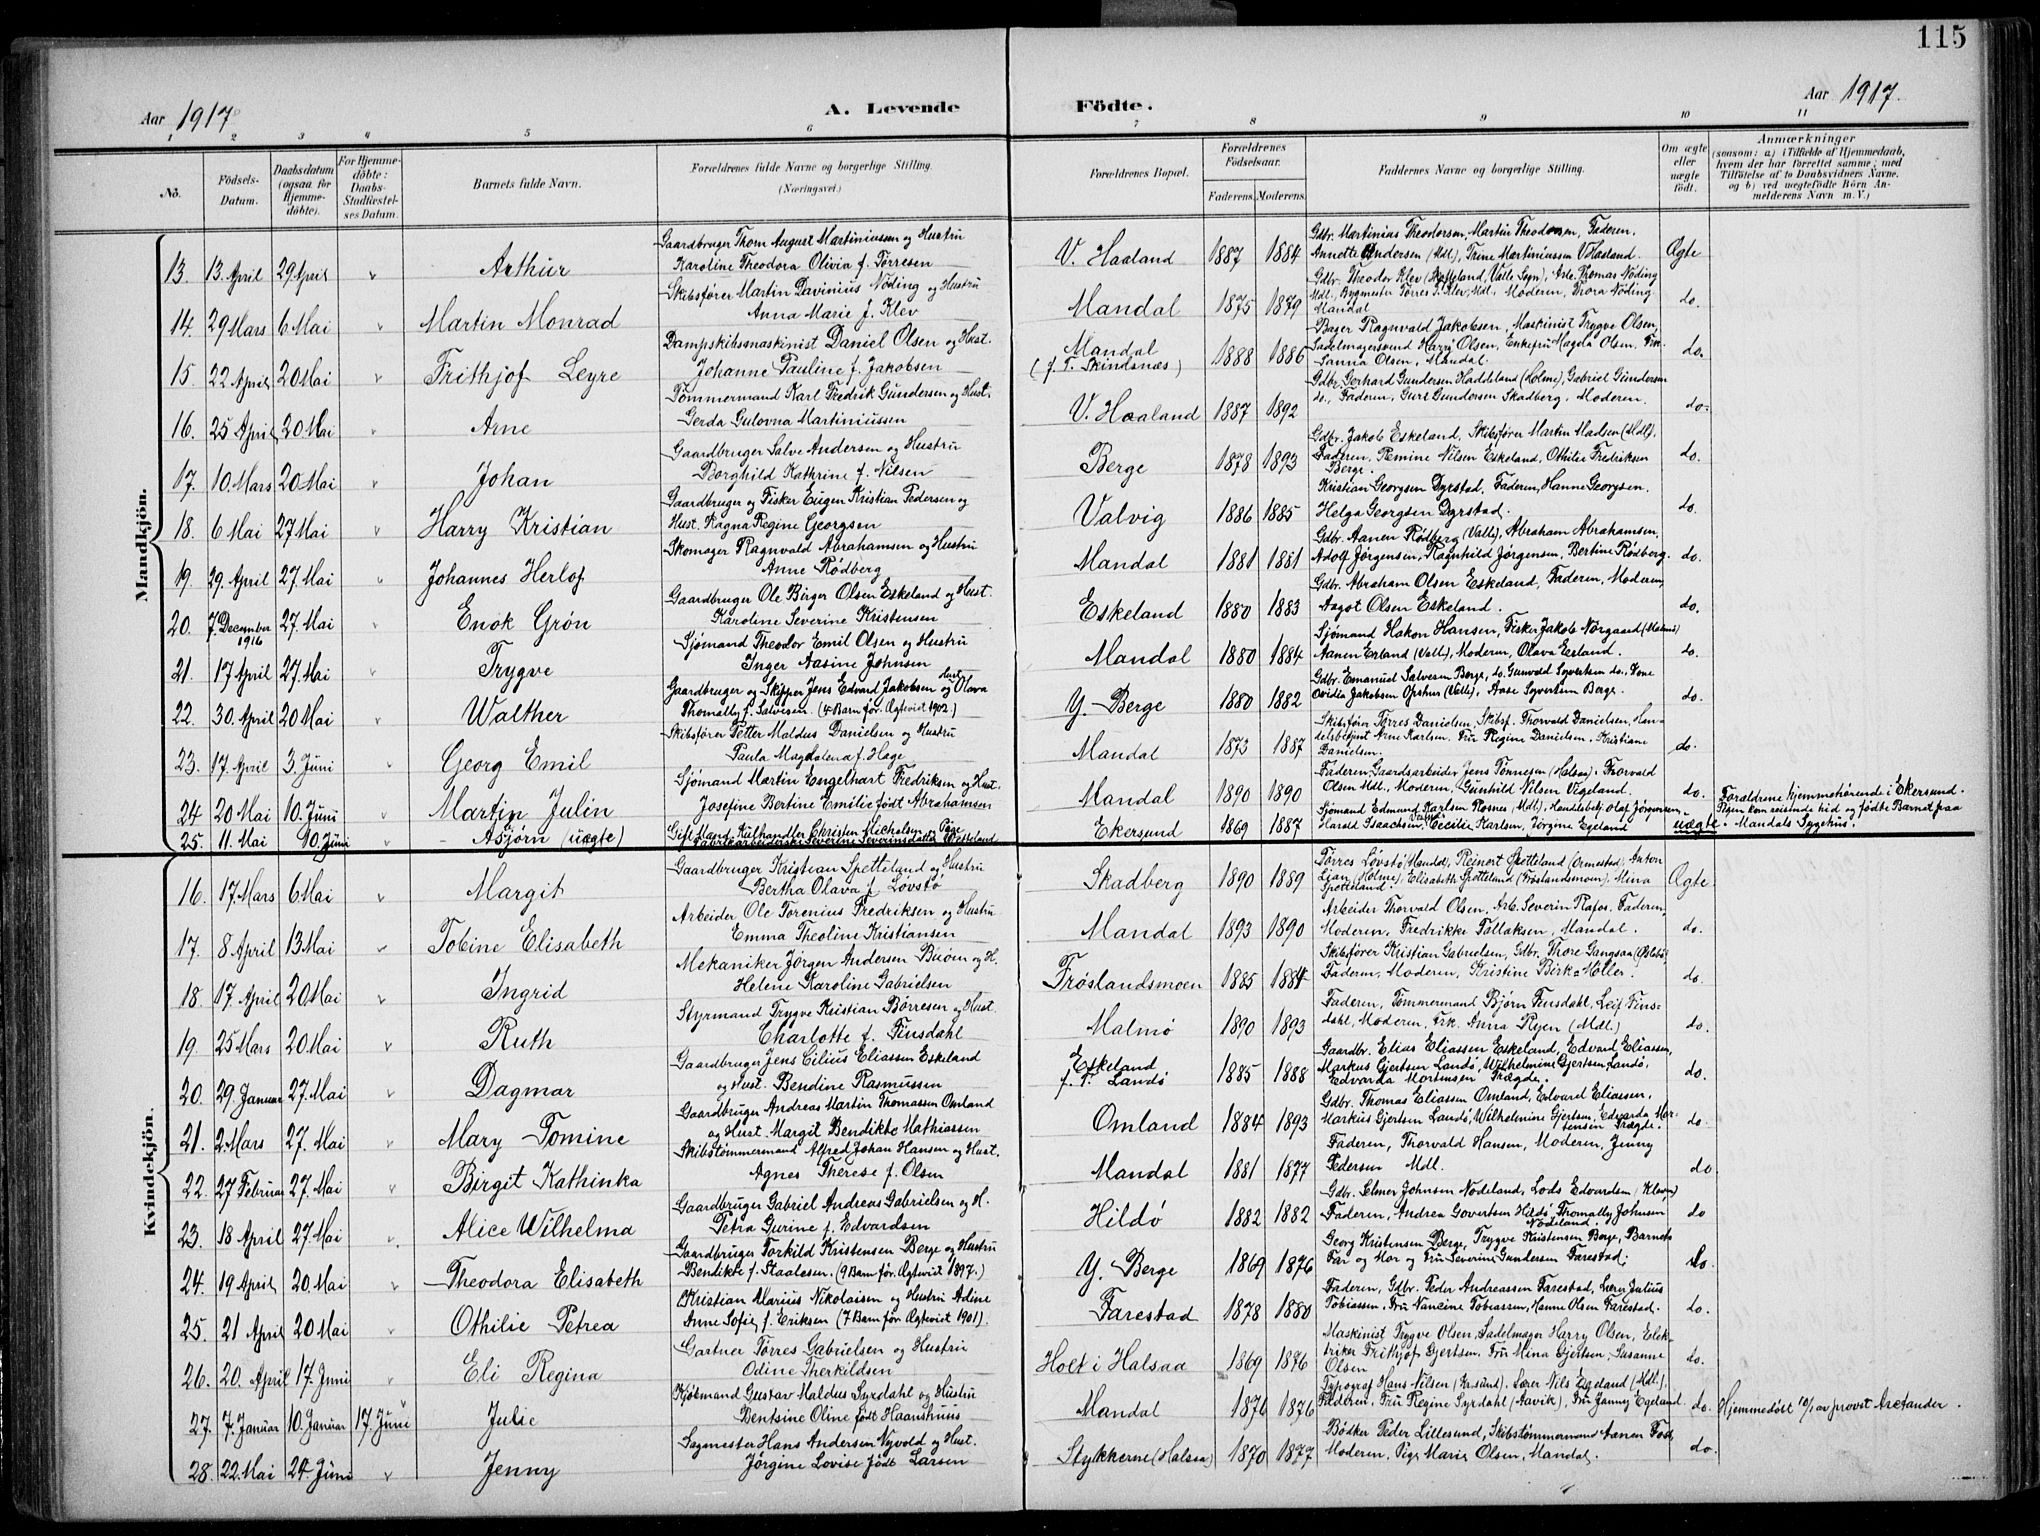 115
Aar 1917
A. Levende
Födte.
Aar 1917.
1 2 3 4 5 6 7 8 9 10 11
No.
Födsels-Datum.
Daabsdatum (ogsaa for Hjemme-döbte).
For Hjemme-döbte: Daabs-Stadfæstel-ses Datum.
Barnets fulde Navn.
Forældrenes fulde Navne og borgerlige Stilling. (Næringsvei.)
Forældrenes Bopæl.
Forældrenes Födselsaar.
Faderens. Moderens.
Faddernes Navne og borgerlige Stilling.
Om ægte eller uægte födt.
Anmærkninger
(saasom: a) i Tilfælde af Hjemmedaab, hvem der har forrettet samme; med Tilföielse af to Daabsvidners Navne. og b) ved uægtefödte Börn An-melderens Navn m. V.)
Mandkjön.
13. 13. April 29 April Arthur Gaardbruger Thom August Martiniussen og Hustru Karoline Theodora Olivia f. Torresen V. Haaland 1887 1884 Gdbr. Martinius Theodorsen, Martin Theodorsen, Faderen, Annette Andersen (Mdl), Trine Martiniussen V Haaland. Ægte
14. 29 Mars 6 Mai Martin Monrad Skibsfører Martin Davinius Nöding og Hustru Anna Marie f. Klev Mandal 1875 1879 Gdbr. Theodor Klev, Arb. Thomas Nöding Mdl., Bygmester Torres T. Klev, Mdl., Moderen, Thora Nöding Mandal do.
15. 22 April 20 Mai Frithjof Leyre Dampskibsmaskinist Daniel Olsen og Hust. Johanne Pauline f. Jakobsen Mandal (f. T. Skindsnæs) 1888 1886 Bager Ragnvald Jakobsen, Maskinist Trygve Olsen, Sadelmagersvend Harry Olsen, Enkefru Magda Olsen, Susanna Olsen, Mandal. do.
16. 25 April 20 Mai Arne Tömmermand Karl Fredrik Gundersen og Hust. Gerda Gulovna Martiniussen V. Haaland 1887 1892 Gdbr. Gerhard Gundersen Haddeland (Holme), Gabriel Gundersen do., Faderen, Guri Gundersen Skadberg, Moderen. do.
17. 10. Mars 20 Mai Johan Gaardbruger Salve Andersen og Hustru Borghild Kathrine f. Nilsen Berge 1878 1893 Gdbr. Jakob Eskeland, Skibsfører Martin Madsen (Mdl), Faderen, Remine Nilsen Eskeland, Othilie Fredriksen Berge. do.
18. 6 Mai 27 Mai Harry Kristian Gaardbruger og Fisker Eugen Kristian Pedersen og Hust. Ragna Regine Georgsen Valvig 1886 1885 Kristian Georgsen Dyrstad, Faderen, Hanne Georgsen. Helga Georgsen Dyrstad. do.
19. 29. April 27. Mai Johannes Herlof Skomager Ragnvald Abrahamsen og Hustru Anne Rödberg Mandal 1881 1881 Gdbr. Aanen Rödberg (Valle), Abraham Abrahamsen, Adolf Jörgensen, Ragnhild Jörgensen, Bertine Rödberg. do.
20. 7 December 1916 27. Mai Enok Grön Gaardbruger Ole Birger Olsen Eskeland og Hust. Karoline Severine Kristensen Eskeland 1880 1883 Gdbr. Abraham Olsen Eskeland, Faderen, Moderen, Aagot Olsen Eskeland. do.
21. 17 April 27. Mai Trygve Sjömand Theodor Emil Olsen og Hustru Inger Aasine Johnsen Mandal 1880 1884 Sjömand Hakon Hansen, Fisker Jakob Nörgaard (Malmö) Aanen Erland (Valle), Moderen, Olava Eerland. do.
22. 30. April 20 Mai Walther Gaardbruger og Skipper Jens Edvard Jakobsen og Hust. Olava Thomally f. Salvesen. (4 Barn før. Ægteviet 1902) Y. Berge 1880 1882 Gdbr. Emanuel Salvesen Berge, do. Gunvald Syvertsen do., Tone Ovidia Jakobsen Opshus (Valle), Aase Syvertsen Berge. do.
23. 17. April 3. Juni Georg Emil Skibsfører Petter Maldus Danielsen og Hustru Paula Magdalena f. Hage Mandal 1873 1887 Skibsfører Torres Danielsen, Skibsf. Thorvald Danielsen, Han-delsbetjent Arne Karlsen. Fru Regine Danielsen. Kristiane Danielsen. do.
24 20 Mai 10. Juni Martin Julin Sjömand Martin Engelhart Fredriksen og Hust. Josefine Bertine Emilie født Abrahamsen Mandal 1890 1890 Faderen, Gaardsarbeider Jens Tönnesen (Halsaa). Thorvald Olsen Mdl., Moderen, Gunhild Nilsen Vigeland. do.
25. 11. Mai 10. Juni Asjörn (uægte) Gift Mand, Kulhandler Christen Michelsen, Pige Fabrikarbeiderske Severine Severinsdatter Ekersund 1869 1887 Sjömand Edmund Karlsen Rosnes (Mdl), Handelsbetj. Olaf Jörgensen, Harald Isaachsen, Cecilia Karlsen, Jörgine Egeland uægte. Forældrene hjemmehörende i Ekersund. Pigen kom reisende hid og fødte Barnet paa Mandals Sygehus.
Kvindekjön.
16. 17. Mars 6 Mai Margit Gaardbruger Kristian Spetteland og Hustru Bertha Olava f. Lövstö Skadberg 1890 1889 Törres Lövstö, Mandal, Reinert Spetteland (Ormestad), Anton Lian (Holme), Elisabeth Spetteland (Fröslandsmoen). Mina Spetteland. Ægte
17. 8 April 13 Mai Tobine Elisabeth Arbeider Ole Torenius Fredriksen og Hustru Emma Theoline Kristiansen Mandal 1893 1890 Arbeider Thorvald Olsen, Arb. Severin Rafos, Faderen, Moderen, Fredrikke Follaksen, Mandal. do.
18 17. April 20 Mai Ingrid Mekaniker Jörgen Andersen Buöen og H. Helene Karoline Gabrielsen Fröslandsmoen 1885 1884 Skibsfører Kristian Gabrielsen, Gdbr. Thore Gangsaa, Faderen, Moderen, Kristine Birk Möller. do.
19. 25 Mars 20 Mai Ruth Styrmand Trygve Kristian Börresen og Hust. Charlotte f. Finsdahl Malmö 1890 1893 Faderen, Tömmermand Björn Finsdahl, Leif Fins-dahl, Moderen, Frk. Anna Ryen (Mdl) do.
20. 29. Januar 27. Mai Dagmar Gaardbruger Jens Cilius Eliassen Eskeland og Hust. Bendine Rasmussen Eskeland f. T. Landö 1885 1888 Gaardbr. Elias Eliassen Eskeland, Edvard Eliassen, Markus Gjertsen Landö, Wilhelmine Gjertsen Landö, Edvarda Mortensen Trægde. do.
21. 2. Mars 27. Mai Mary Tomine Gaardbruger Andreas Martin Thomassen Omland og Hust. Margit Bendikte Mathiassen Omland 1884 1893 Gdbr. Thomas Eliassen Omland, Edvard Eliassen, Markus Gjertsen Landö, Wilhelmine Gjertsen, Edvarda Mor-tensen Trægde. do.
22. 27 Februar 27. Mai Birgit Kathinka Skibstömmermand Alfred Johan Hansen og Hust. Agnes Therese f. Olsen Mandal 1881 1877 Faderen, Thorvald Hansen, Moderen, Jenny Pedersen Mdl. do
23. 18 April 27. Mai Alice Wilhelma Gaardbruger Gabriel Andreas Gabrielsen og H. Petra Gurine f. Edvardsen Hildö 1882 1882 Gdbr. Selmer Johnsen Nodeland, Lods Edvardsen (Kleven) Faderen, Andrea Govertsen Hildö, Thomally Johnsen Nodeland. do
24. 19 April 20. Mai Theodora Elisabeth Gaardbruger Torkild Kristensen Berge og Hustru Bendikte f. Staalesen. (9 Barn før. Ægteviet 1897.) Y. Berge 1869 1876 Georg Kristensen Berge, Trygve Kristensen Berge, Barnets Far og Mor og Fru Severine Gundersen Farestad. do
25. 21 April 20 Mai Othilie Petrea Kristian Marius Nikolaisen og Hustru Adine Anne Sofie f. Eriksen (7 Barn før. Ægteviet 1901). Farestad 1878 1880 Faderen, Gdbr. Peder Andreassen Farestad, Lærer Julius Tobiassen, Fru Nancine Tobiassen, Hanne Olsen Farestad. do.
26. 20. April 17. Juni Eli Regina Gartner Törres Gabrielsen og Hustru Odine Therkildsen Holt i Halsaa 1869 1876 Maskinist Trygve Olsen, Sadelmager Harry Olsen, Elek-triker Frithjof Gjertsen, Fru Mina Gjertsen, Susanne Olsen do.
27. 7. Januar 10. Januar 17. Juni Julie Kjöbmand Gustav Maldus Syrdahl og Hustru Bentsine Oline født Haanshuus Mandal 1876 1876 Typograf Hans Nilsen (Kr.sund). Lærer Nils Egeland (Mdl). Faderen, Fru Regine Syrdahl (Aavik), Fru Janny Egeland do. Hjemmedöbt 10/1 av provst Arctander.
28. 22. Mai 24. Juni Jenny Sagmester Hans Andersen Nyvold og Hust. Jörgine Lovise født Larsen Stykkerne (Halsaa) 1870 1877 Bödker Peder Lillesund, Skibstömmermand Aanen Fod, Moderen, Pige Marie Olsen, Mandal. do.